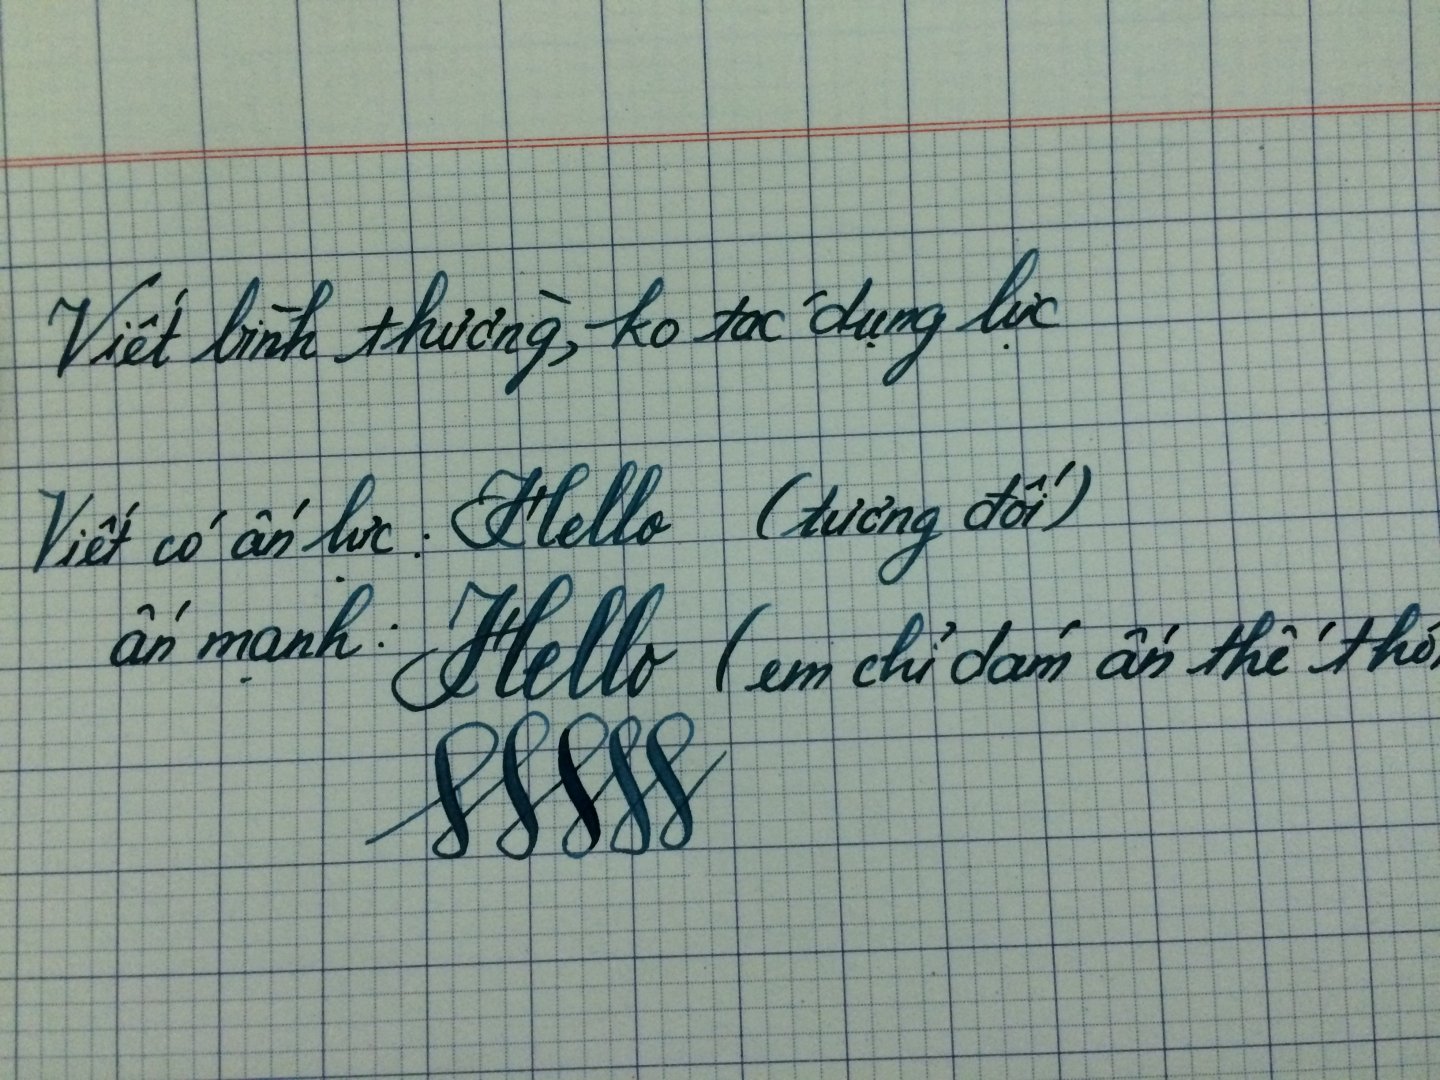 Viết bình thường, ko tác dụng lực
Viết có ấn lực: Hello (tương đối)
ấn mạnh: Hello (em chỉ dám ấn thế thôi